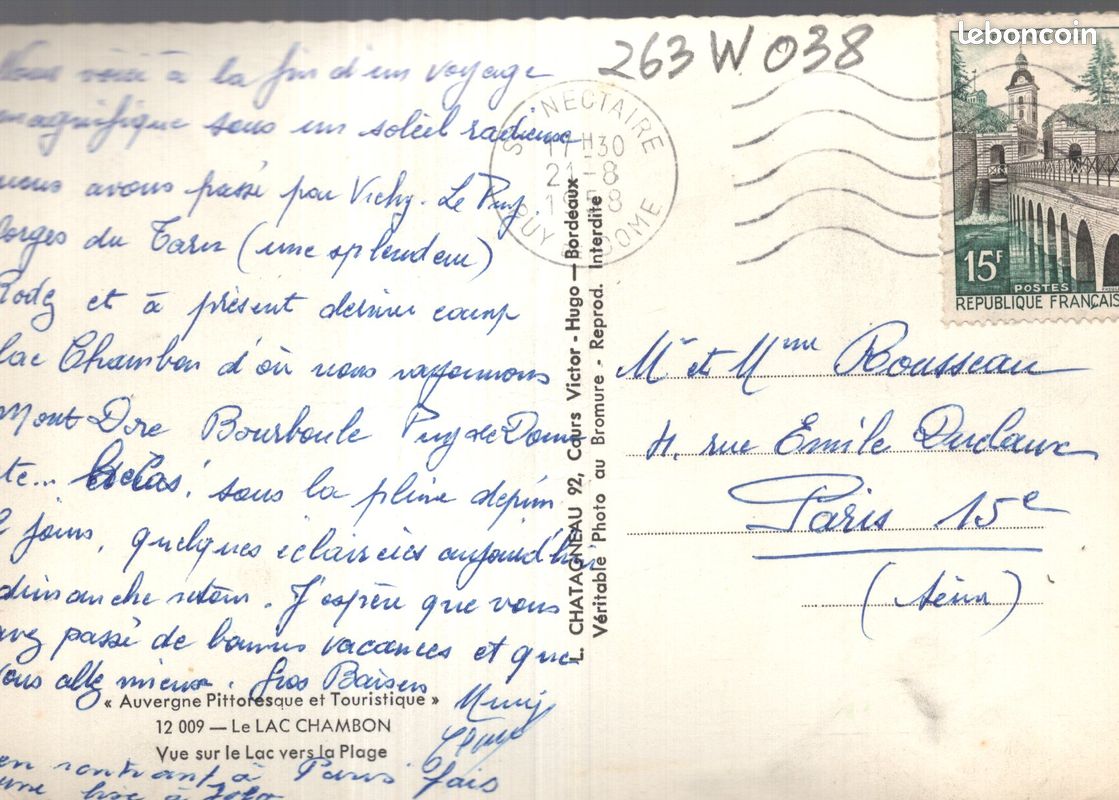 leboncoin
263 W 038
ST NECTAIRE
17H30
21-8
1958
PUY DE DOME
15F
POSTES
REPUBLIQUE FRANÇAIS
Nous voici à la fin d'un voyage
magnifique sous un soleil radieux
nous avons passé par Vichy. Le Puy.
Gorges du Tarn (une splendeur)
Rodez et à présent dernier camp
lac Chambon d'où nous rayonnons
Mont Dore Bourboule Puy de Dome
etc... hélas, sous la pluie depuis
jours, quelques éclaircies aujourd'hui
dimanche retour. J'espère que vous
avez passé de bonnes vacances et que
vous allez mieux. Gros Baisers
« Auvergne Pittoresque et Touristique »
12 009 — Le LAC CHAMBON
Vue sur le Lac vers la Plage
en rentrant à Paris fais
une bise à
L. CHATAGNEAU 92, Cours Victor-Hugo — Bordeaux
Véritable Photo au Bromure - Reprod. Interdite
Mr et Mme Rousseau
rue Emile Duclaux
Paris 15e
(Seine)